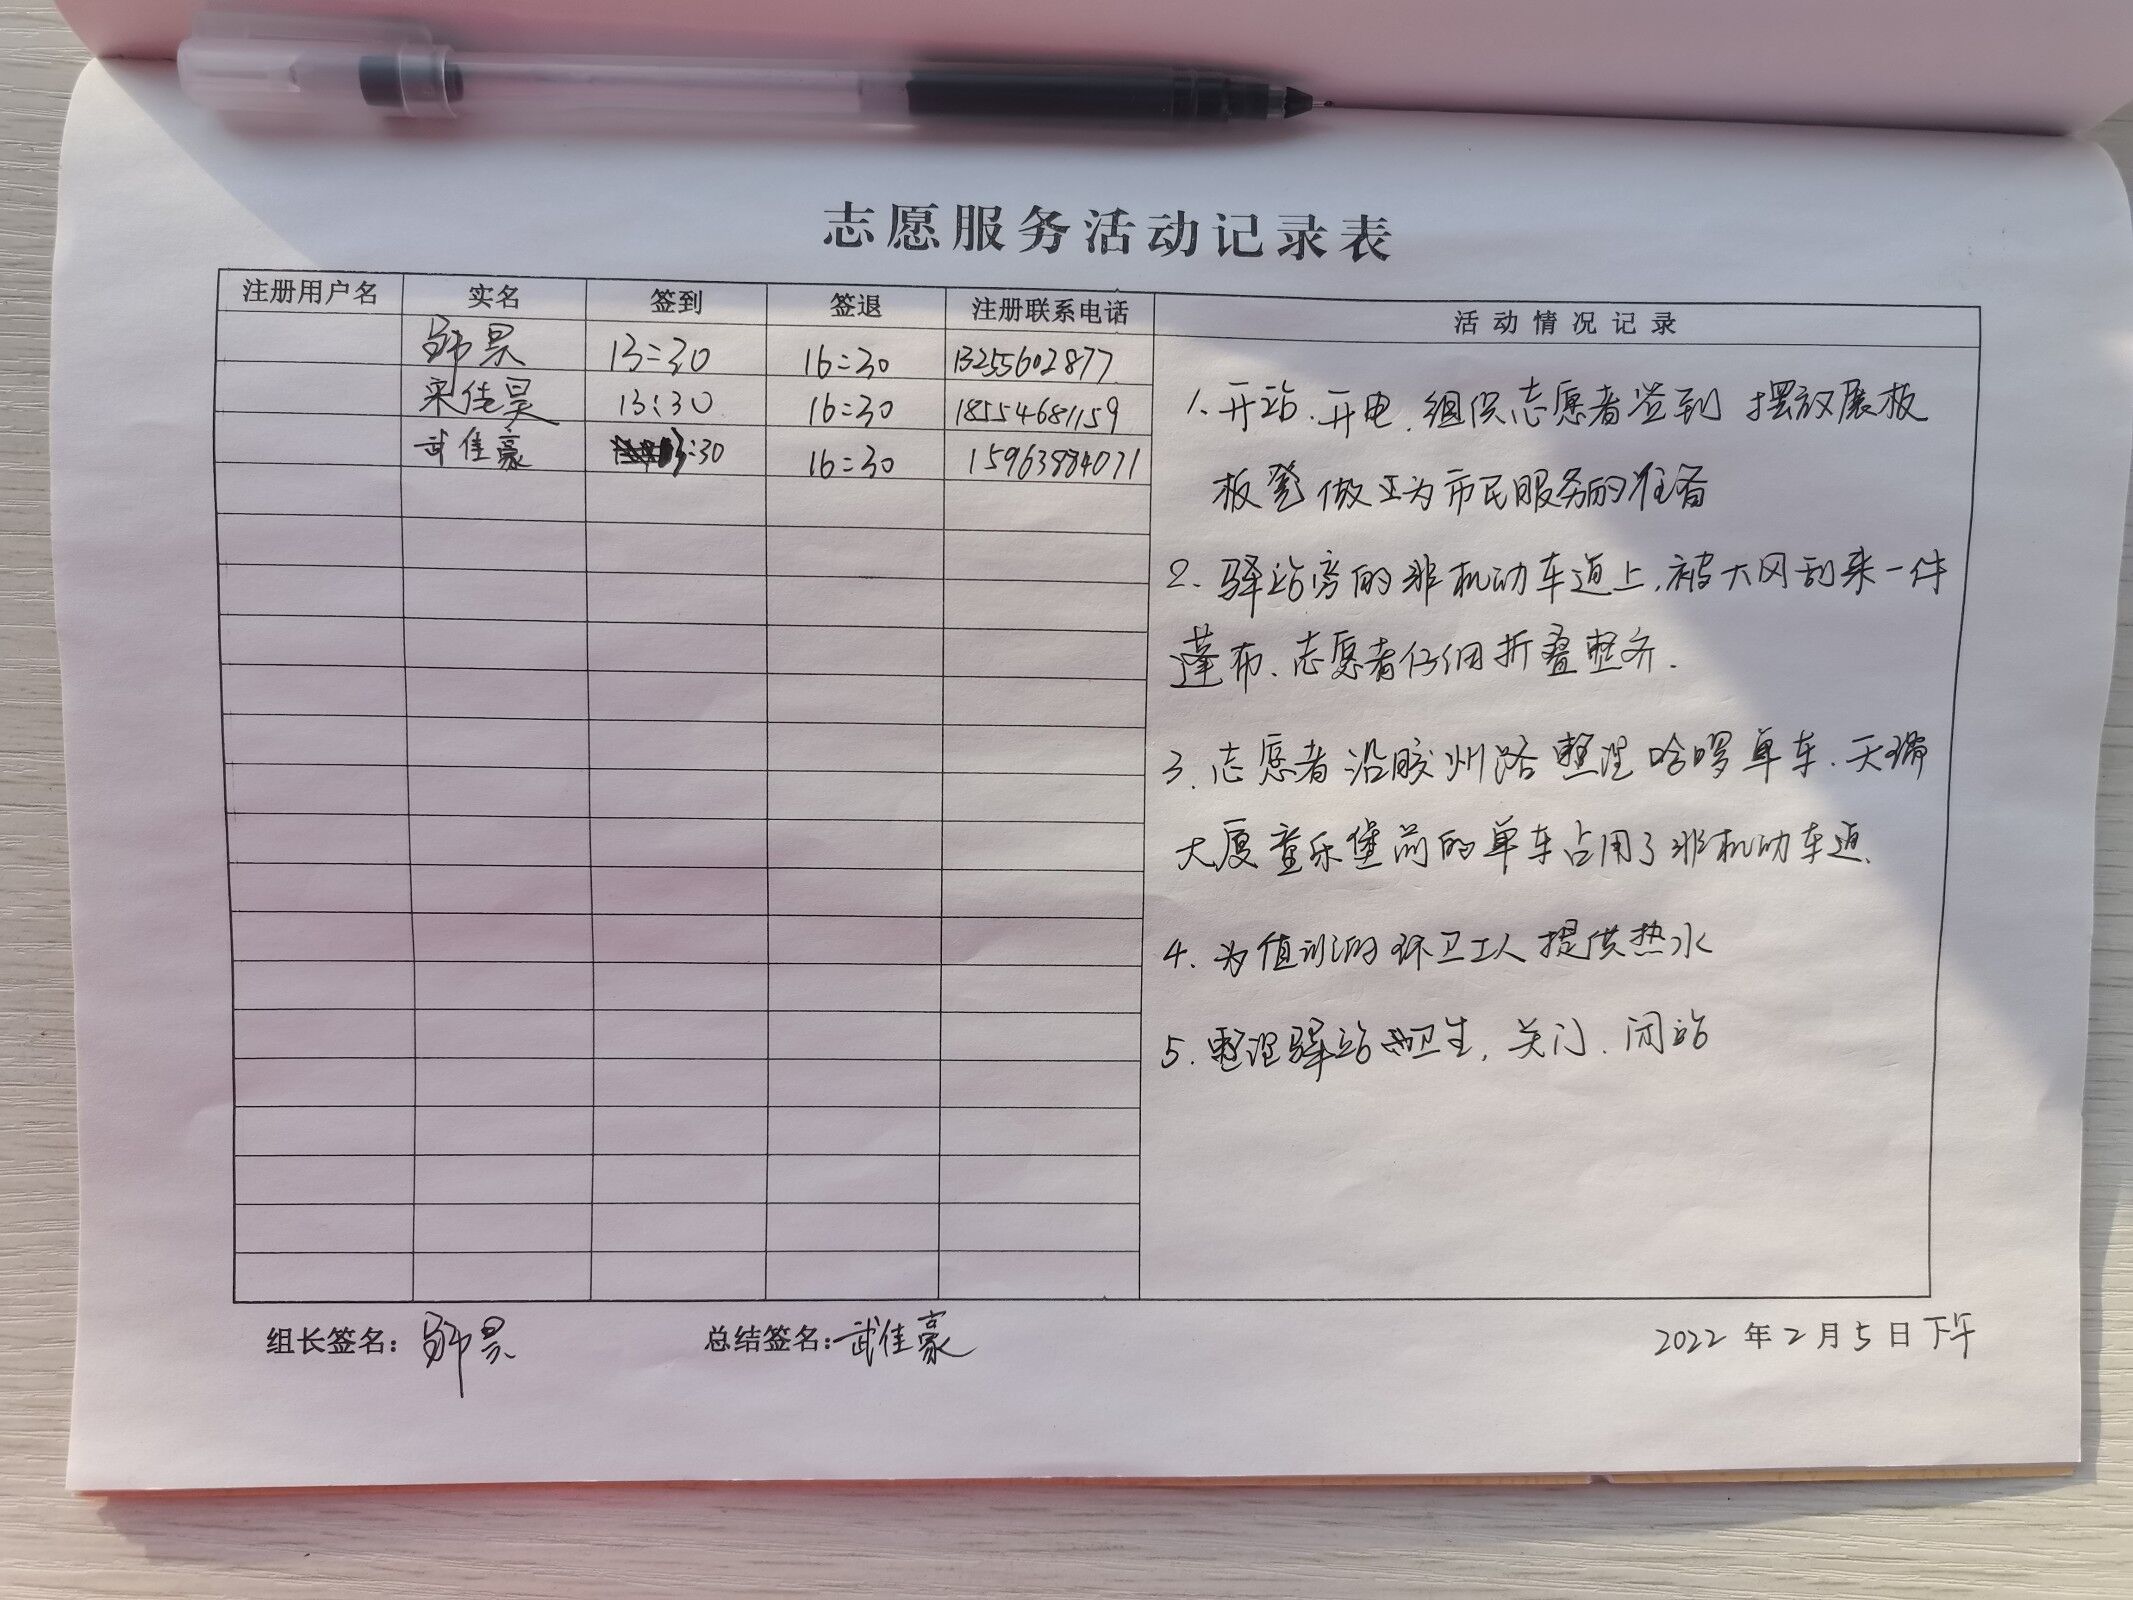 志愿服务活动记录表
注册用户名 实名 签到 签退 注册联系电话 活动情况记录
昊 13:30 16:30 13255602877
宋佳昊 13:30 16:30 18554681159
武佳豪 13:30 16:30 15963884071
1、开站、开电、组织志愿者签到 摆放展板
板凳 做好为市民服务的准备
2、驿站旁的非机动车道上,被大风刮来一件
蓬布、志愿者仔细折叠整齐.
3、志愿者沿胶州路整理哈啰单车、天瑞
大厦童乐堡前的单车占用了非机动车道.
4、为值班的环卫工人提供热水
5、整理驿站卫生,关门、闭站
组长签名: 昊 总结签名: 武佳豪 2022年2月5日下午